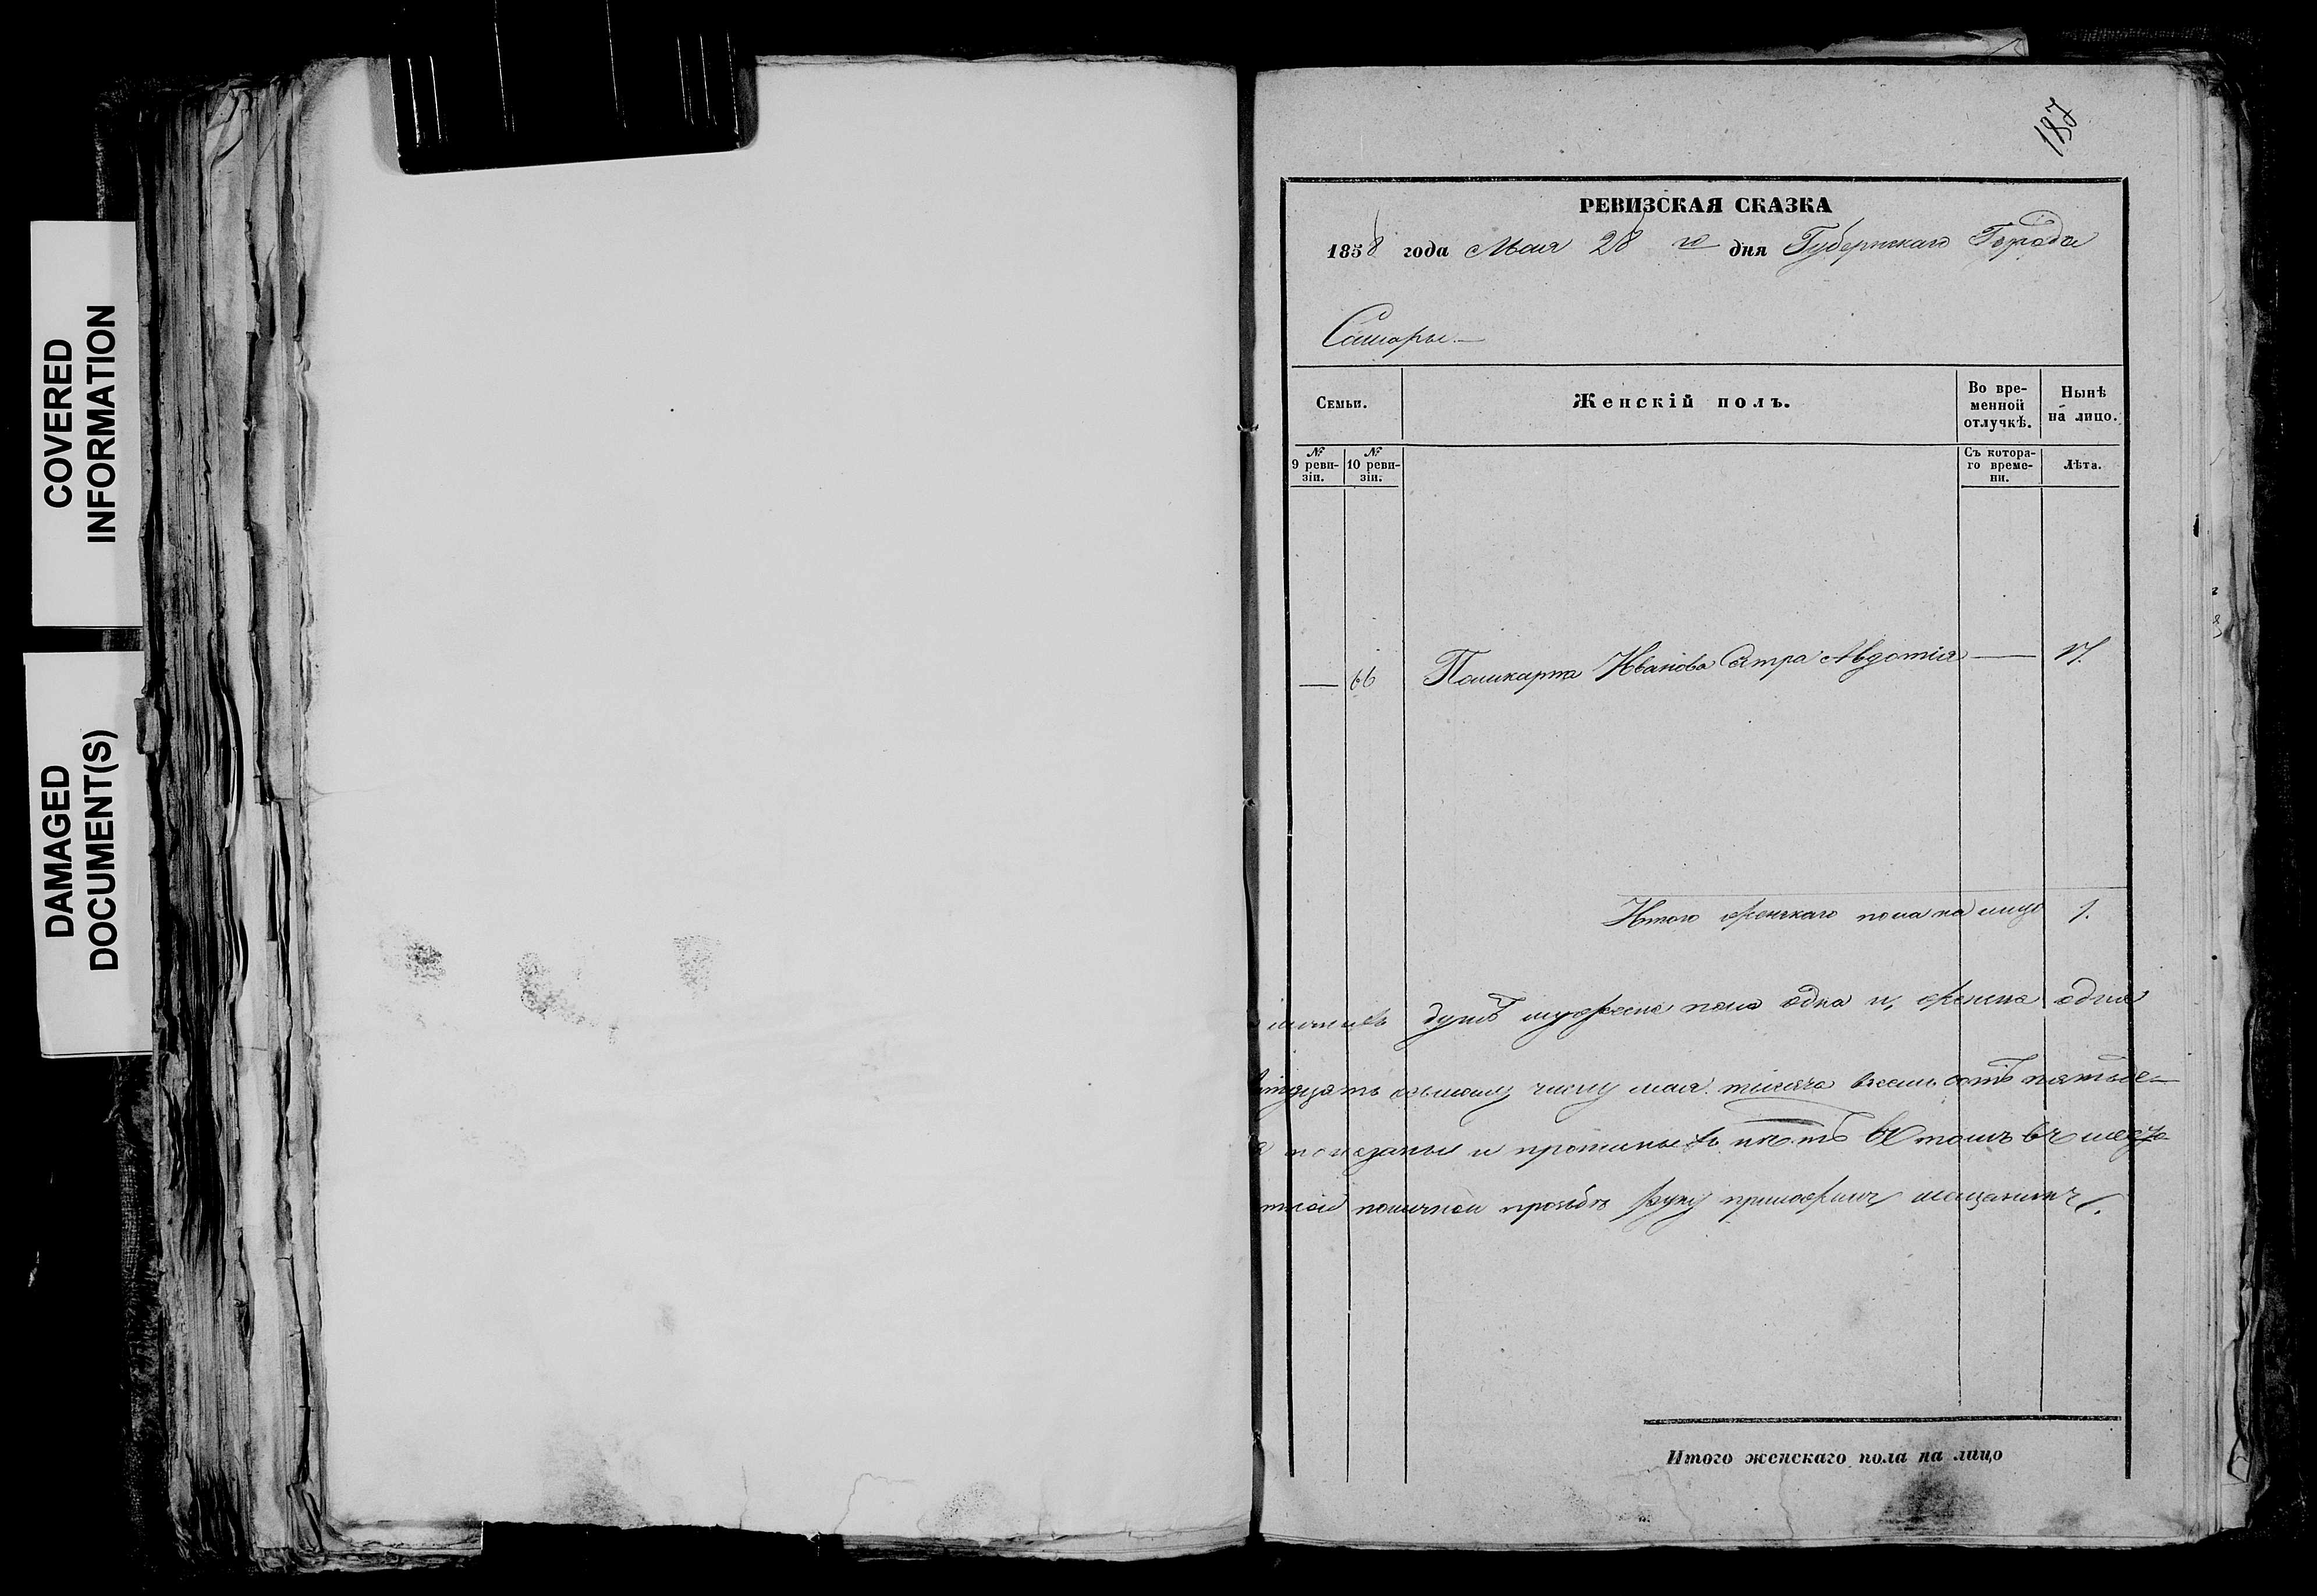 COVERED
INFORMATION
DAMAGED
DOCUMENT(S)
187
РЕВИЗСКАЯ СКАЗКА
1858 года Мая 28 го дня Губернскаго Города
Самары.
Семьи.
Женскій полъ.
Во вре-
менной
отлучкѣ.
Нынѣ
на лицо.
№
9 реви-
зіи.
№
10 реви-
зіи.
Съ котора-
го време-
ни.
Лѣта.
— 66 Иванова Сестра Авдотія — 17.
Итого женскаго пола на лицо 1.
душъ мужеска пола одна и, женска одна
осьмому числу мая тысяча восемь сотъ пятьде-
и нѣтъ въ томъ въ
личной прозьбѣ руку приложилъ мещанинъ
Итого женскаго пола на лицо